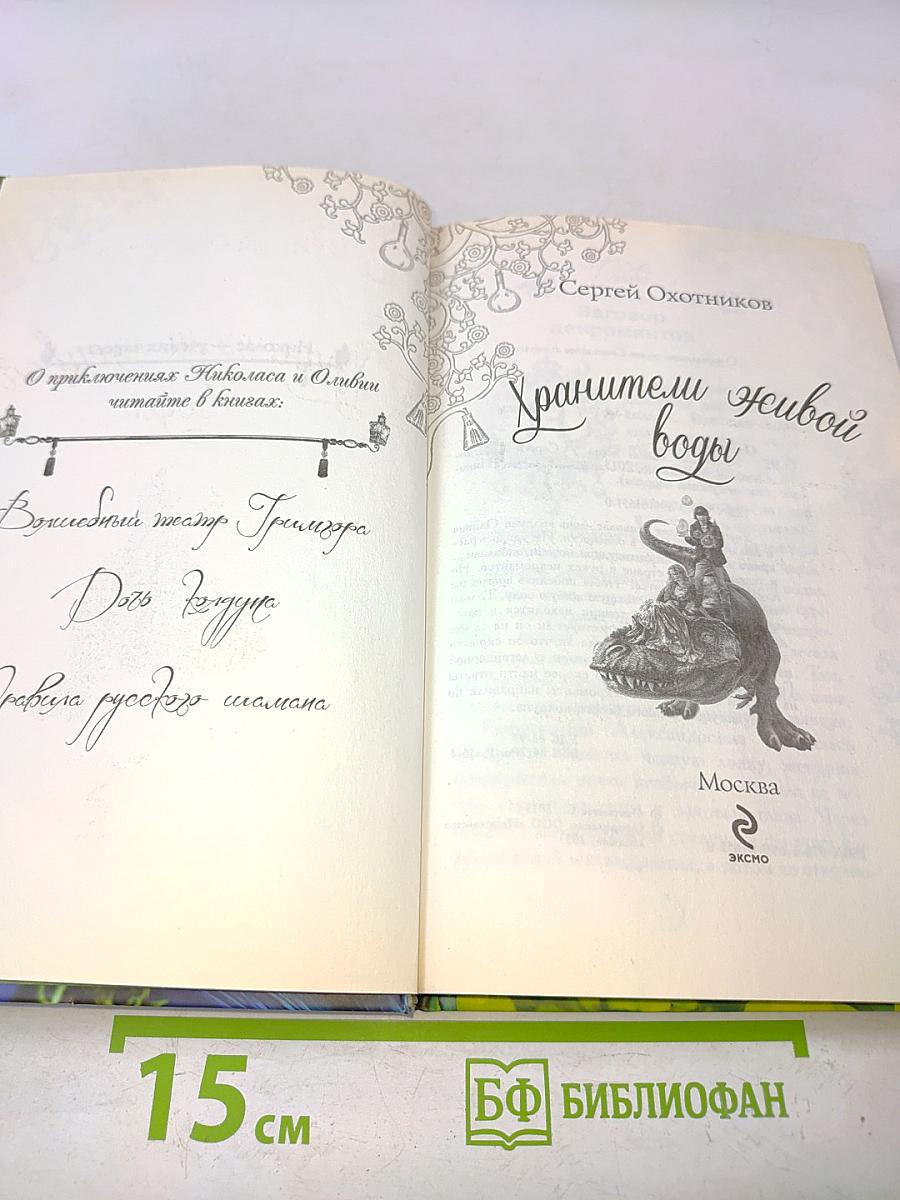 О приключениях Николаса и Оливии
читайте в книгах:
Волшебный театр Гримгора
Дочь колдуна
Правила русского шамана
Сергей Охотников
Хранители живой
воды
Москва
ЭКСМО
15 см
БФ БИБЛИОФАН